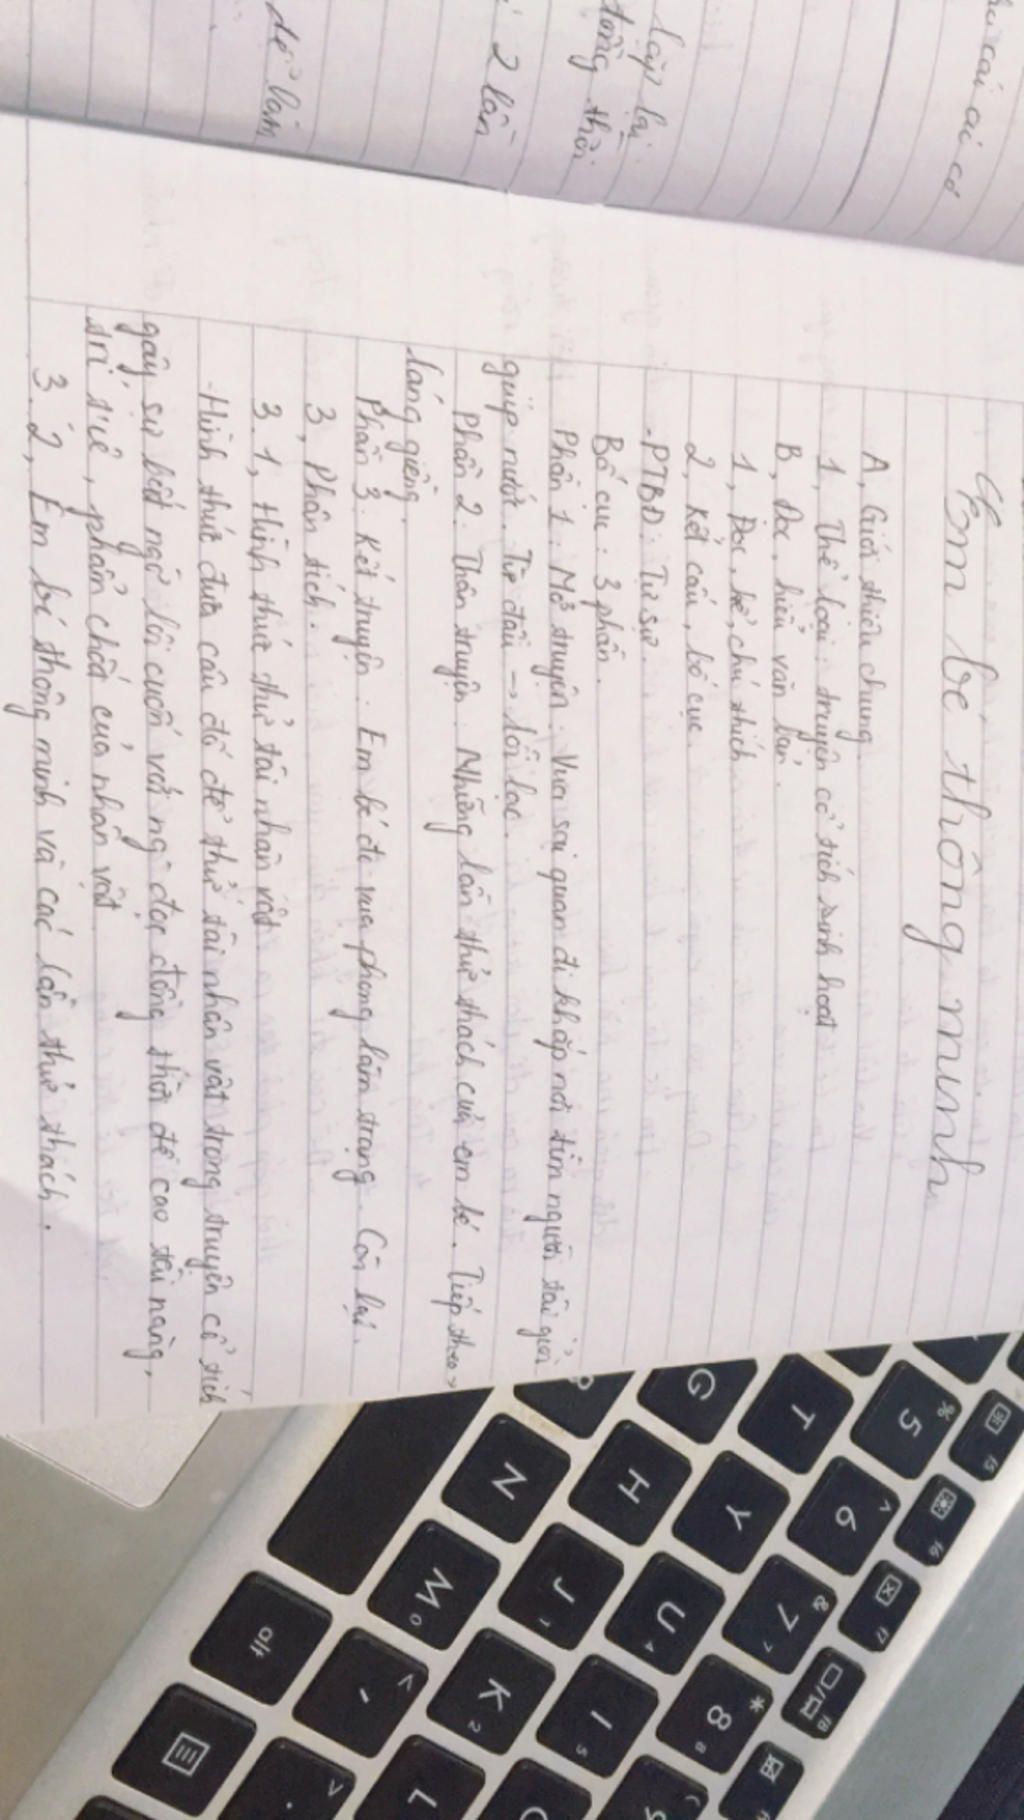 hai cái ai có
lặp lại
đồng thời
2 lần
để làm
Em bé thông minh
A, Giới thiệu chung
1, Thể loại: truyện cổ tích sinh hoạt
B, Đọc, hiểu văn bản.
1, Đọc, kể, chú thích
2, Kết cấu, bố cục
-PTBĐ: Tự sự.
Bố cục: 3 phần.
Phần 1: Mở truyện: Vua sai quan đi khắp nơi tìm người tài giỏi
giúp nước. Từ đầu -> lỗi lạc.
Phần 2: Thân truyện. Những lần thử thách của em bé. Tiếp theo ->
láng giềng.
Phần 3: Kết truyện: Em bé đc vua phong làm trạng. Còn lại.
3, Phân tích.
3.1, Hình thức thử tài nhân vật
-Hình thức đưa câu đố để thử tài nhân vật trong truyện cổ tích
gây sự bất ngờ lôi cuốn với ng đọc đồng thời đề cao tài năng,
trí tuệ, phẩm chất của nhân vật
3.2, Em bé thông minh và các lần thử thách.
% 5
^ 6
& 7
* 8
f5
f6
f7
f8
G
T
H
Y
N
J 1
U 4
M 0
K 2
I 5
L
alt
<
>